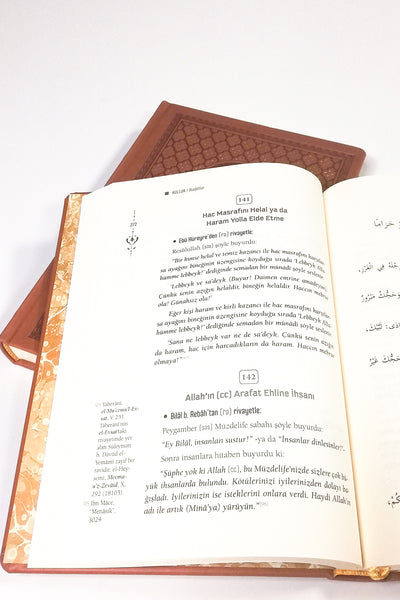 KULLUK / Hadisler
277
141
Hac Masrafını Helal ya da
Haram Yolla Elde Etme
• Ebû Hüreyre'den (ra) rivayetle:
Resûlullah (sas) şöyle buyurdu:
"Bir kimse helal ve temiz kazancı ile hac masrafını karşılar-
sa ayağını bineğinin üzengisine koyduğu sırada 'Lebbeyk Allâ-
hümme lebbeyk!' dediğinde semadan bir münâdi şöyle seslenir:
'Lebbeyk ve sa'deyk (Buyur! Daimen emrine amadeyim).
Çünkü senin azığın helaldir, bineğin helaldir. Haccın mebrur
ola! Günahsız ola!'
Eğer kişi haram ve kirli kazancı ile hac masrafını karşılar-
sa ayağını bineğinin üzengisine koyduğu sırada 'Lebbeyk Allâ-
hümme lebbeyk!' dediğinde semadan bir münâdi şöyle seslenir:
'Sana ne lebbeyk var ne de sa'deyk. Çünkü senin azığın
da haram, hac için harcadıkların da haram. Haccın mebrur
olmaya!'"
142
Allah'ın (cc) Arafat Ehline İhsanı
• Bilâl b. Rebâh'tan (ra) rivayetle:
Peygamber (sas) Müzdelife sabahı şöyle buyurdu:
"Ey Bilâl, insanları sustur!" -ya da "İnsanlar dinlesinler!".
Sonra insanlara hitaben buyurdu ki:
"Şüphe yok ki Allah (cc), bu Müzdelife'nizde sizlere çok bü-
yük ihsanlarda bulundu. Kötülerinizi iyilerinizden dolayı ba-
ğışladı. İyilerinizin ise isteklerini onlara verdi. Haydi Allah'ın
adı ile artık (Minâ'ya) yürüyün."
Taberânî,
el-Mu'cemü'l-Ev-
sat, V, 251.
Taberânî'nin
el-Evsat'taki
rivayetinde yer
alan Süleyman
b. Davûd el-
Yemâmî zayıf bir
ravidir. el-Hey-
semî, Mecma-
u'z-Zevâid, X,
292 (18103).
İbn Mâce,
"Menâsik",
3024
حَرَامًا